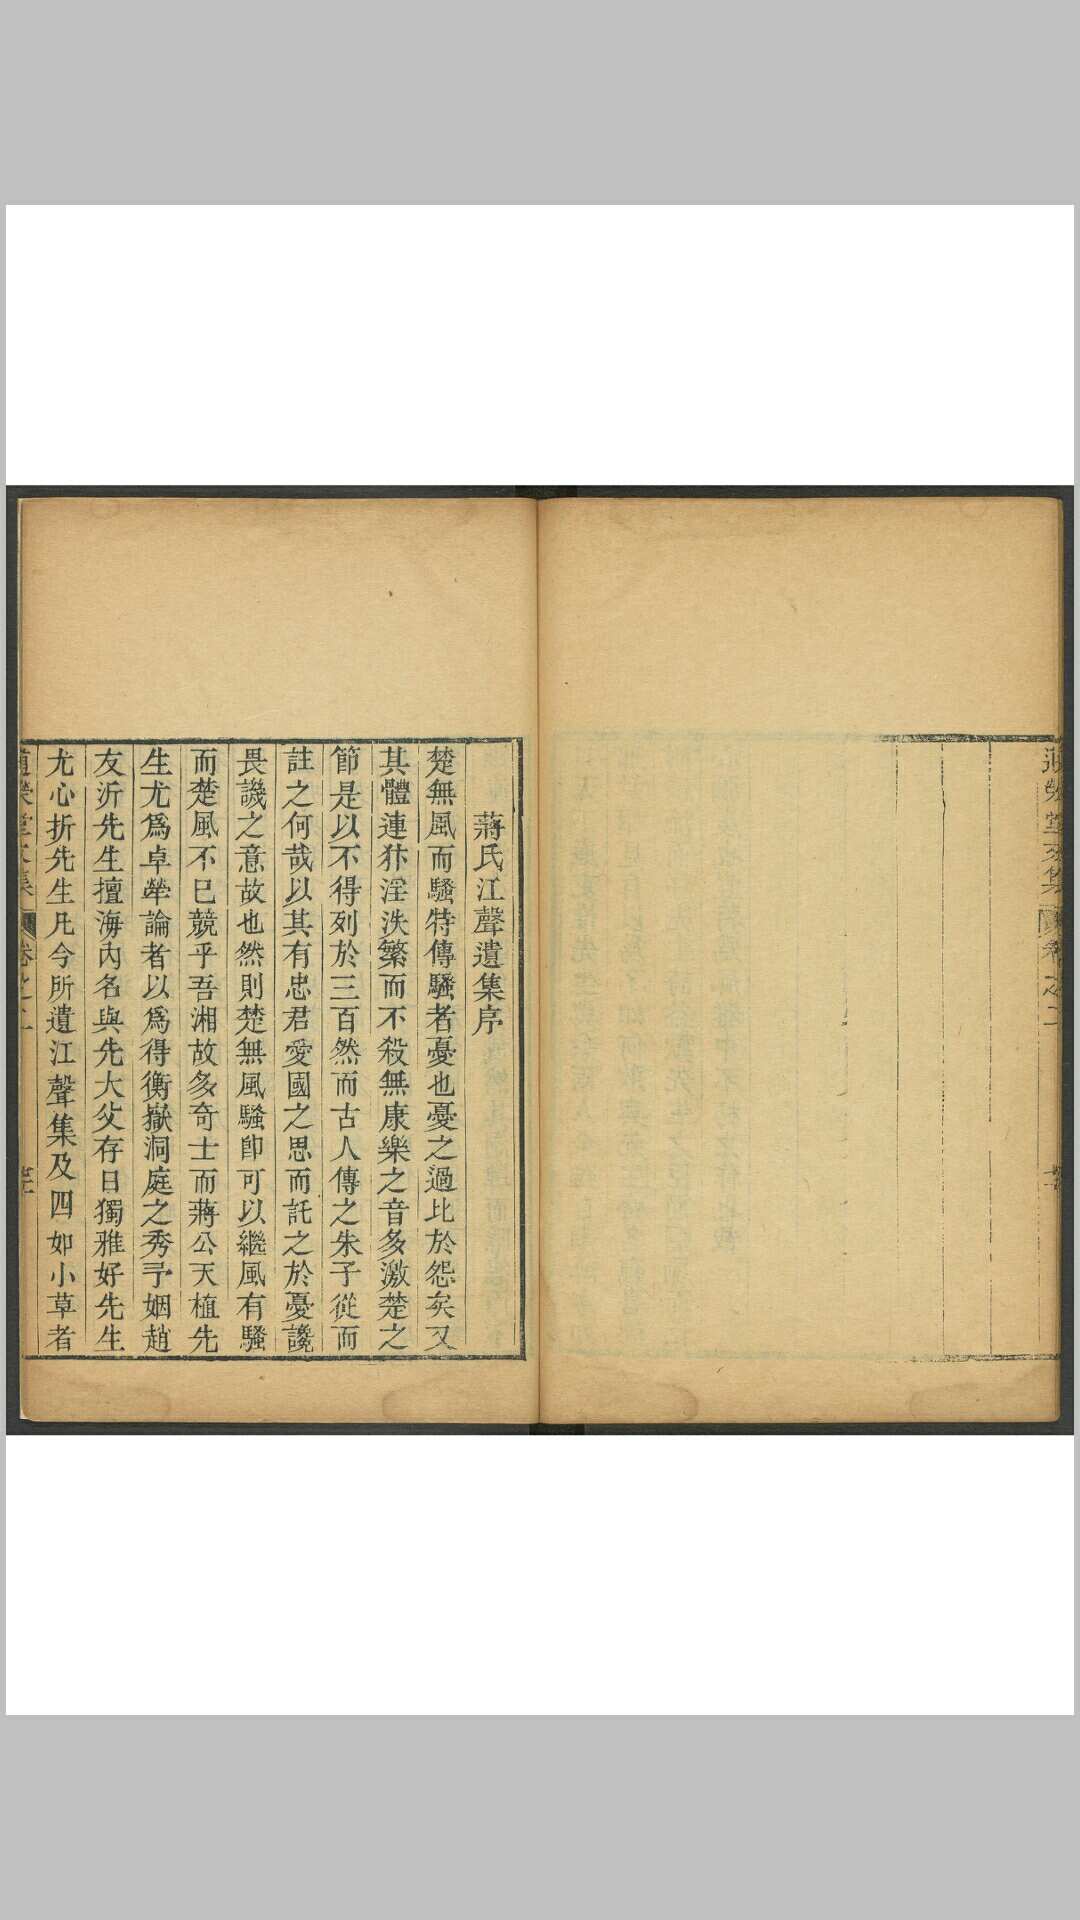 堂文集 卷之二
蔣氏江聲遺集序
楚無風而騷特傳騷者憂也憂之過比於怨矣又
其體連犿淫泆繁而不殺無康樂之音多激楚之
節是以不得列於三百然而古人傳之朱子從而
註之何哉以其有忠君愛國之思而託之於憂讒
畏譏之意故也然則楚無風騷卽可以繼風有騷
而楚風不已競乎吾湘故多奇士而蔣公天植先
生尤爲卓犖論者以爲得衡嶽洞庭之秀予姻趙
友沂先生擅海內名與先大父存日獨雅好先生
尤心折先生凡今所遺江聲集及四如小草者
堂文集 卷之二